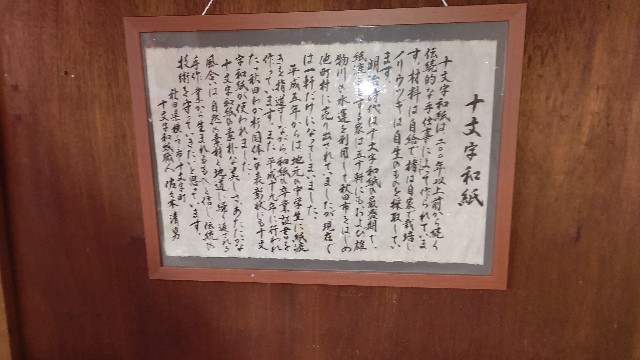 十文字和紙
十文字和紙は二〇〇年以上前から続く
伝統的な手仕事によって作られていま
す。材料は自給で楮は自家で栽培し
ノリウツギは自生のものを採取してい
ます。
明治時代は十文字和紙の最盛期で、
紙漉をする家は五十軒にもおよび雄
物川の水運を利用して秋田市をはじめ
町村に売り出されていましたが現在で
は一軒だけになってしまいました。
平成五年からは地元の中学生に紙漉
きを指導しながら和紙の卒業証書を
作っています。また、平成十九年に行われ
た、秋田わか杉国体の表彰状にも十文
字和紙が使われました。
十文字和紙の素朴な美しさ、あたたかな
風合いは自然の素材と地道に繰り返される
手作業から生まれるものと信じ伝統の
技術を守っていきたいと思っています。
秋田県横手市十文字町
十文字和紙職人 佐々木清男